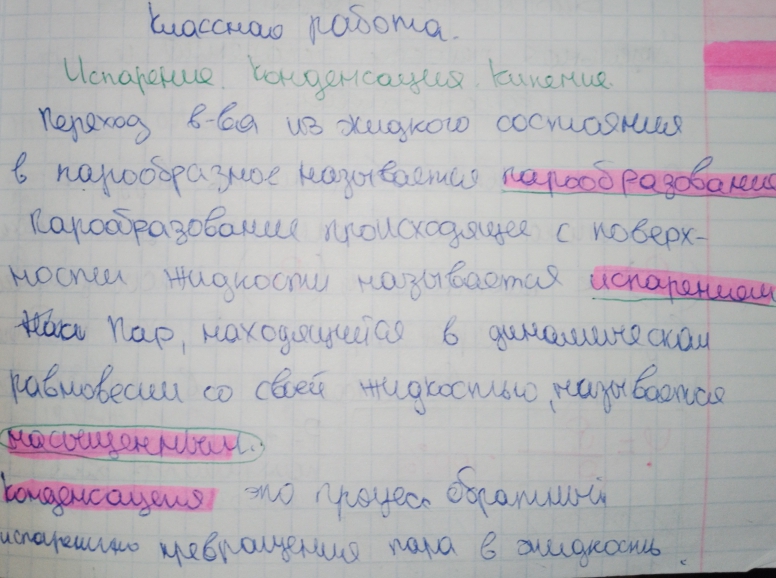 Классная работа.
Испарение. Конденсация. Кипение.
Переход в-ва из жидкого состояния
в парообразное называется парообразование
Парообразование происходящее с поверх-
ности жидкости называется испарением
Пар, находящийся в динамическом
равновесии со своей жидкостью, называется
насыщенным.
Конденсация это процесс обратный
испарению превращения пара в жидкость.